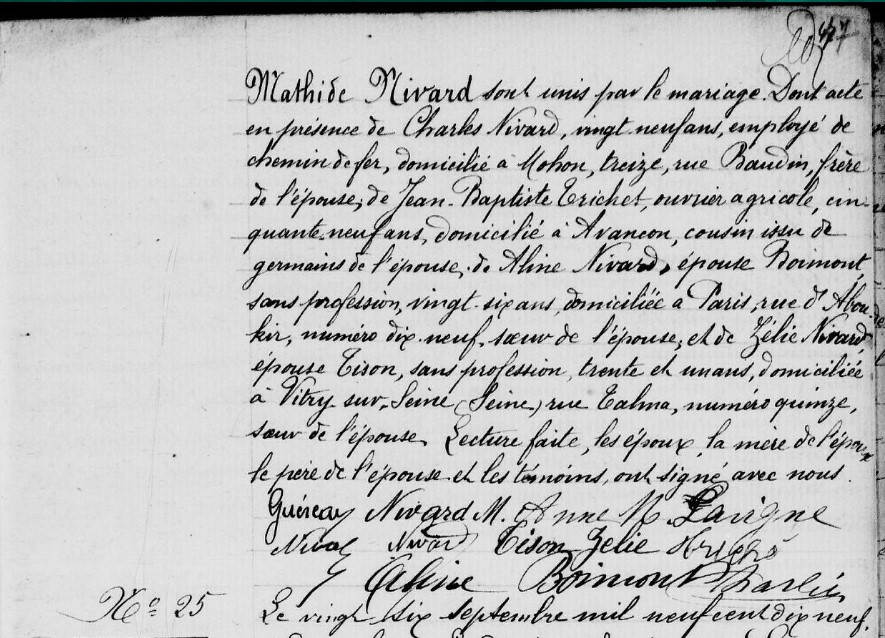 47
Mathide Nivard sont unis par le mariage. Dont acte
en présence de Charles Nivard, vingt neuf ans, employé de
chemin de fer, domicilié à Mohon, treize, rue Baudin, frère
de l'épouse, de Jean-Baptiste Trichet, ouvrier agricole, cin-
quante neuf ans, domicilié à Avancon, cousin issu de
germains de l'épouse, de Aline Nivard, épouse Boimont
sans profession, vingt-six ans, domiciliée à Paris, rue d'Abou-
kir, numéro dix-neuf, sœur de l'épouse; et de Zélie Nivard
épouse Tison, sans profession, trente et un ans, domiciliée
à Vitry sur Seine (Seine) rue Talma, numéro quinze,
sœur de l'épouse. Lecture faite, les époux, la mère de l'époux
le père de l'épouse et les témoins, ont signé avec nous.
Nivard M. Anne M. Lavigne
Nivard Tison Zélie
Aline Boimont
No 25
Le vingt six septembre mil neuf cent dix neuf,